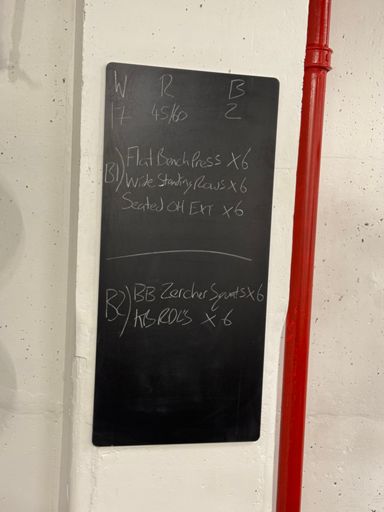 W R B
17 45/60 2
B1) Flat Bench Press x6
Wide Standing Rows x6
Seated OH Ext x6
B2) BB Zercher Squats x6
KB RDLs x 6